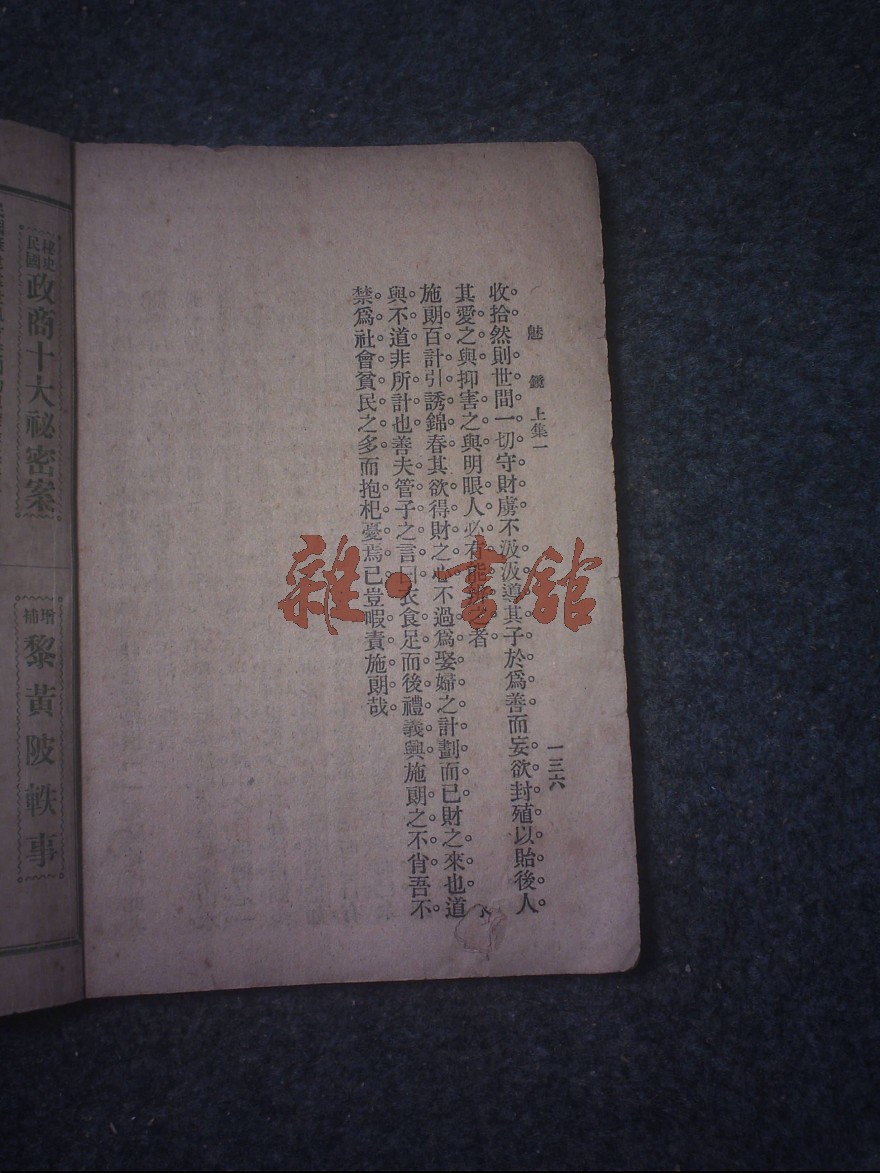 魅鏡 上集一 一三六
收拾然則世間一切守財虜不汲汲導其子於爲善而妄欲封殖以貽後人
其愛之與抑害之與明眼人必有能之者
施朗百計引誘錦春其欲得財之心不過爲娶婦之計劃而已財之來也道
與不道非所計也善夫管子之言曰衣食足而後禮義興施朗之不肖吾不
禁爲社會貧民之多而抱杞憂焉已豈暇責施朗哉
雜·書館
民國秘史
政商十大祕密案
增補
黎黃陂軼事